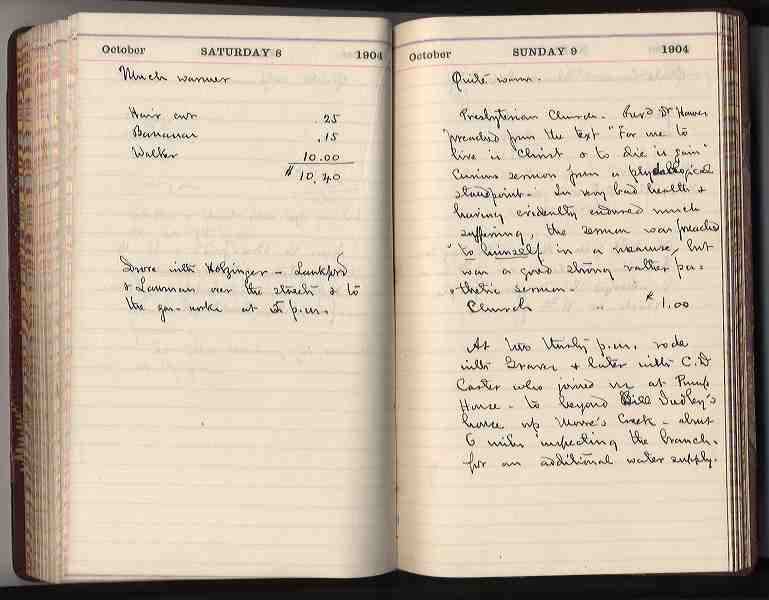 October SATURDAY 8 1904
Much warmer
Hair cut .25
Bananas .15
Walter 10.00
$ 10.40
Drove with Holzinger - Lankford
& Lawman over the streets & to
the gas-works at 5 p.m.
October SUNDAY 9 1904
Quite warm.
Presbyterian Church. Rev'd Dr Hawes
preached from the text "For me to
live is Christ & to die is gain"
Curious sermon from a
standpoint. In very bad health &
having evidently endured much
suffering, the sermon was preached
"to himself in a measure, but
was a good strong rather pa=
thetic sermon.
Church $ 1.00
At two thirty p.m. rode
with Graves & later with C.D
Carter who joined me at Pump
House - to beyond Bill Dudley's
house up Moore's Creek - about
6 miles inspecting the branch.
for an additional water supply.